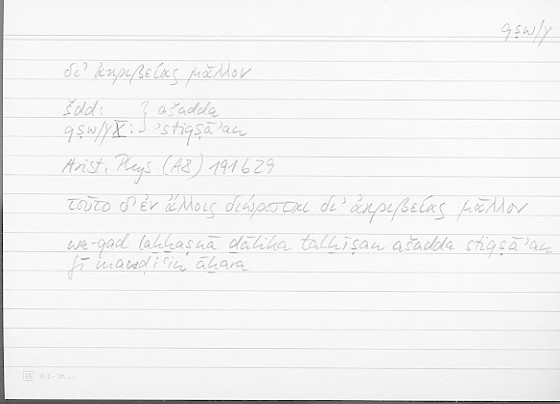 qṣw/y
δι' ἀκριβείας μᾶλλον
šdd: } ašadda
qṣw/y X: } 'stiqṣā'an
Arist. Phys (A8) 191b29
τοῦτο δ' ἐν ἄλλοις διώρισται δι' ἀκριβείας μᾶλλον
wa-qad laḫḫaṣnā ḏālika talḫīṣan ašadda stiqṣā'an
fī mawḍi'in āḫara